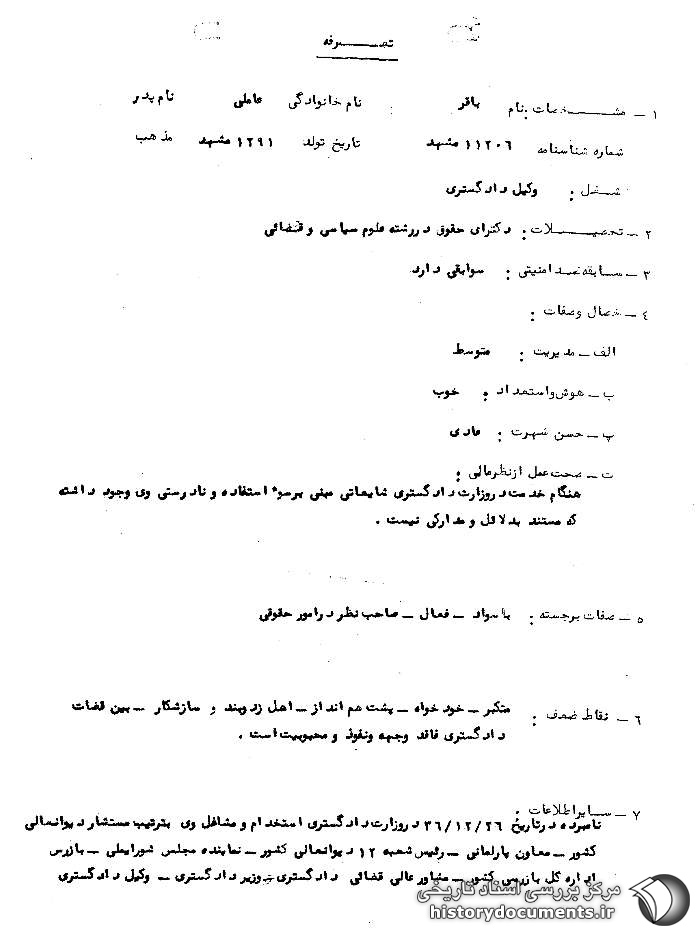 تعـــرفه
۱ ـ مشـــخصات : نام باقر نام خانوادگی عاملی نام پدر
شماره شناسنامه ۱۱۲۰۶ مشهد تاریخ تولد ۱۲۹۱ مشهد مذهب
شــغل : وکیل دادگستری
۲ ـ تحصیــلات : دکترای حقوق دررشته علوم سیاسی و قضائی
۳ ـ سـابقه ضد امنیتی : سوابقی دارد
٤ ـ خصال وصفات :
الف ـ مدیریت : متوسط
ب ـ هوش واستعداد : خوب
پ ـ حسن شهرت : عادی
ت ـ صحت عمل ازنظرمالی :
هنگام خدمت در وزارت دادگستری شایعاتی مبنی برسوء استفاده و نادرستی وی وجود داشته
که مستند بدلائل و مدارکی نیست .
۵ ـ صفات برجسته : باسواد ـ فعال ـ صاحب نظر درامور حقوقی
٦ ـ نقاط ضعف : متکبر ـ خود خواه ـ پشت هم انداز ـ اهل زدوبند و سازشکار ـ بین قضات
دادگستری فاقد وجهه ونفوذ و محبوبیت است .
۷ ـ سـایراطلاعات :
نامبرده درتاریخ ۳۶/۱۲/۲۶ در وزارت دادگستری استخدام و مشاغل وی بترتیب مستشار دیوانعالی
کشور ـ معاون پارلمانی ـ رئیس شعبه ۱۲ دیوانعالی کشور ـ نماینده مجلس شورایملی ـ بازرس
اداره کل بازرسی کشور ـ مشاور عالی قضائی دادگستری ـ وزیر دادگستری ـ وکیل دادگستری
مرکز بررسی اسناد تاریخی
historydocuments.ir